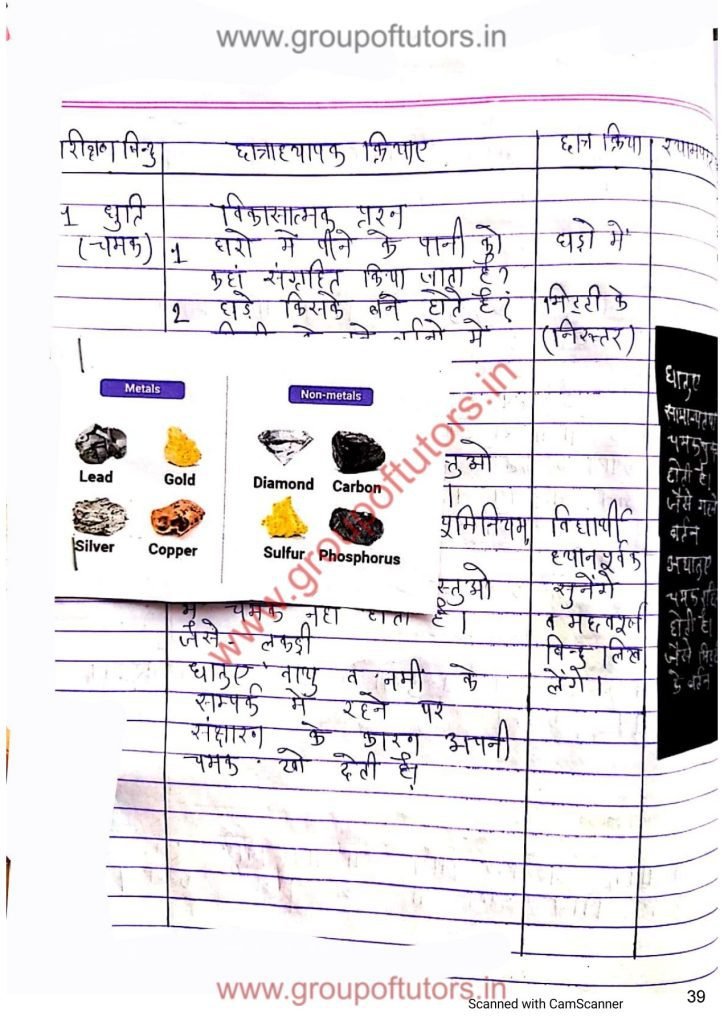 www.groupoftutors.in
रीक्षण बिन्दु
छात्राध्यापक क्रियाए
छात्र क्रिया
श्यामपट
1 धुति
(चमक)
विकासात्मक प्रश्न
1 घरो में पीने के पानी को
कहां संग्रहित किया जाता है?
2 घड़े किसके बने होते है?
घड़ो में
मिट्टी के
(निरूत्तर)
Metals
Non-metals
Lead
Gold
Diamond
Carbon
Silver
Copper
Sulfur
Phosphorus
www.groupoftutors.in
में चमक नही होती है।
जैसे - लकड़ी
धातुए वायु व नमी के
सम्पर्क में रहने पर
संक्षारन के कारन अपनी
चमक खो देती है।
विद्यार्थी
ध्यानपूर्वक
सुनेंगे
व महत्वपूर्ण
बिन्दु लिख
लेंगे।
धातुए
होती है।
जैसे
बर्तन
अधातुए
होती है।
जैसे
के बर्तन
www.groupoftutors.in
Scanned with CamScanner
39